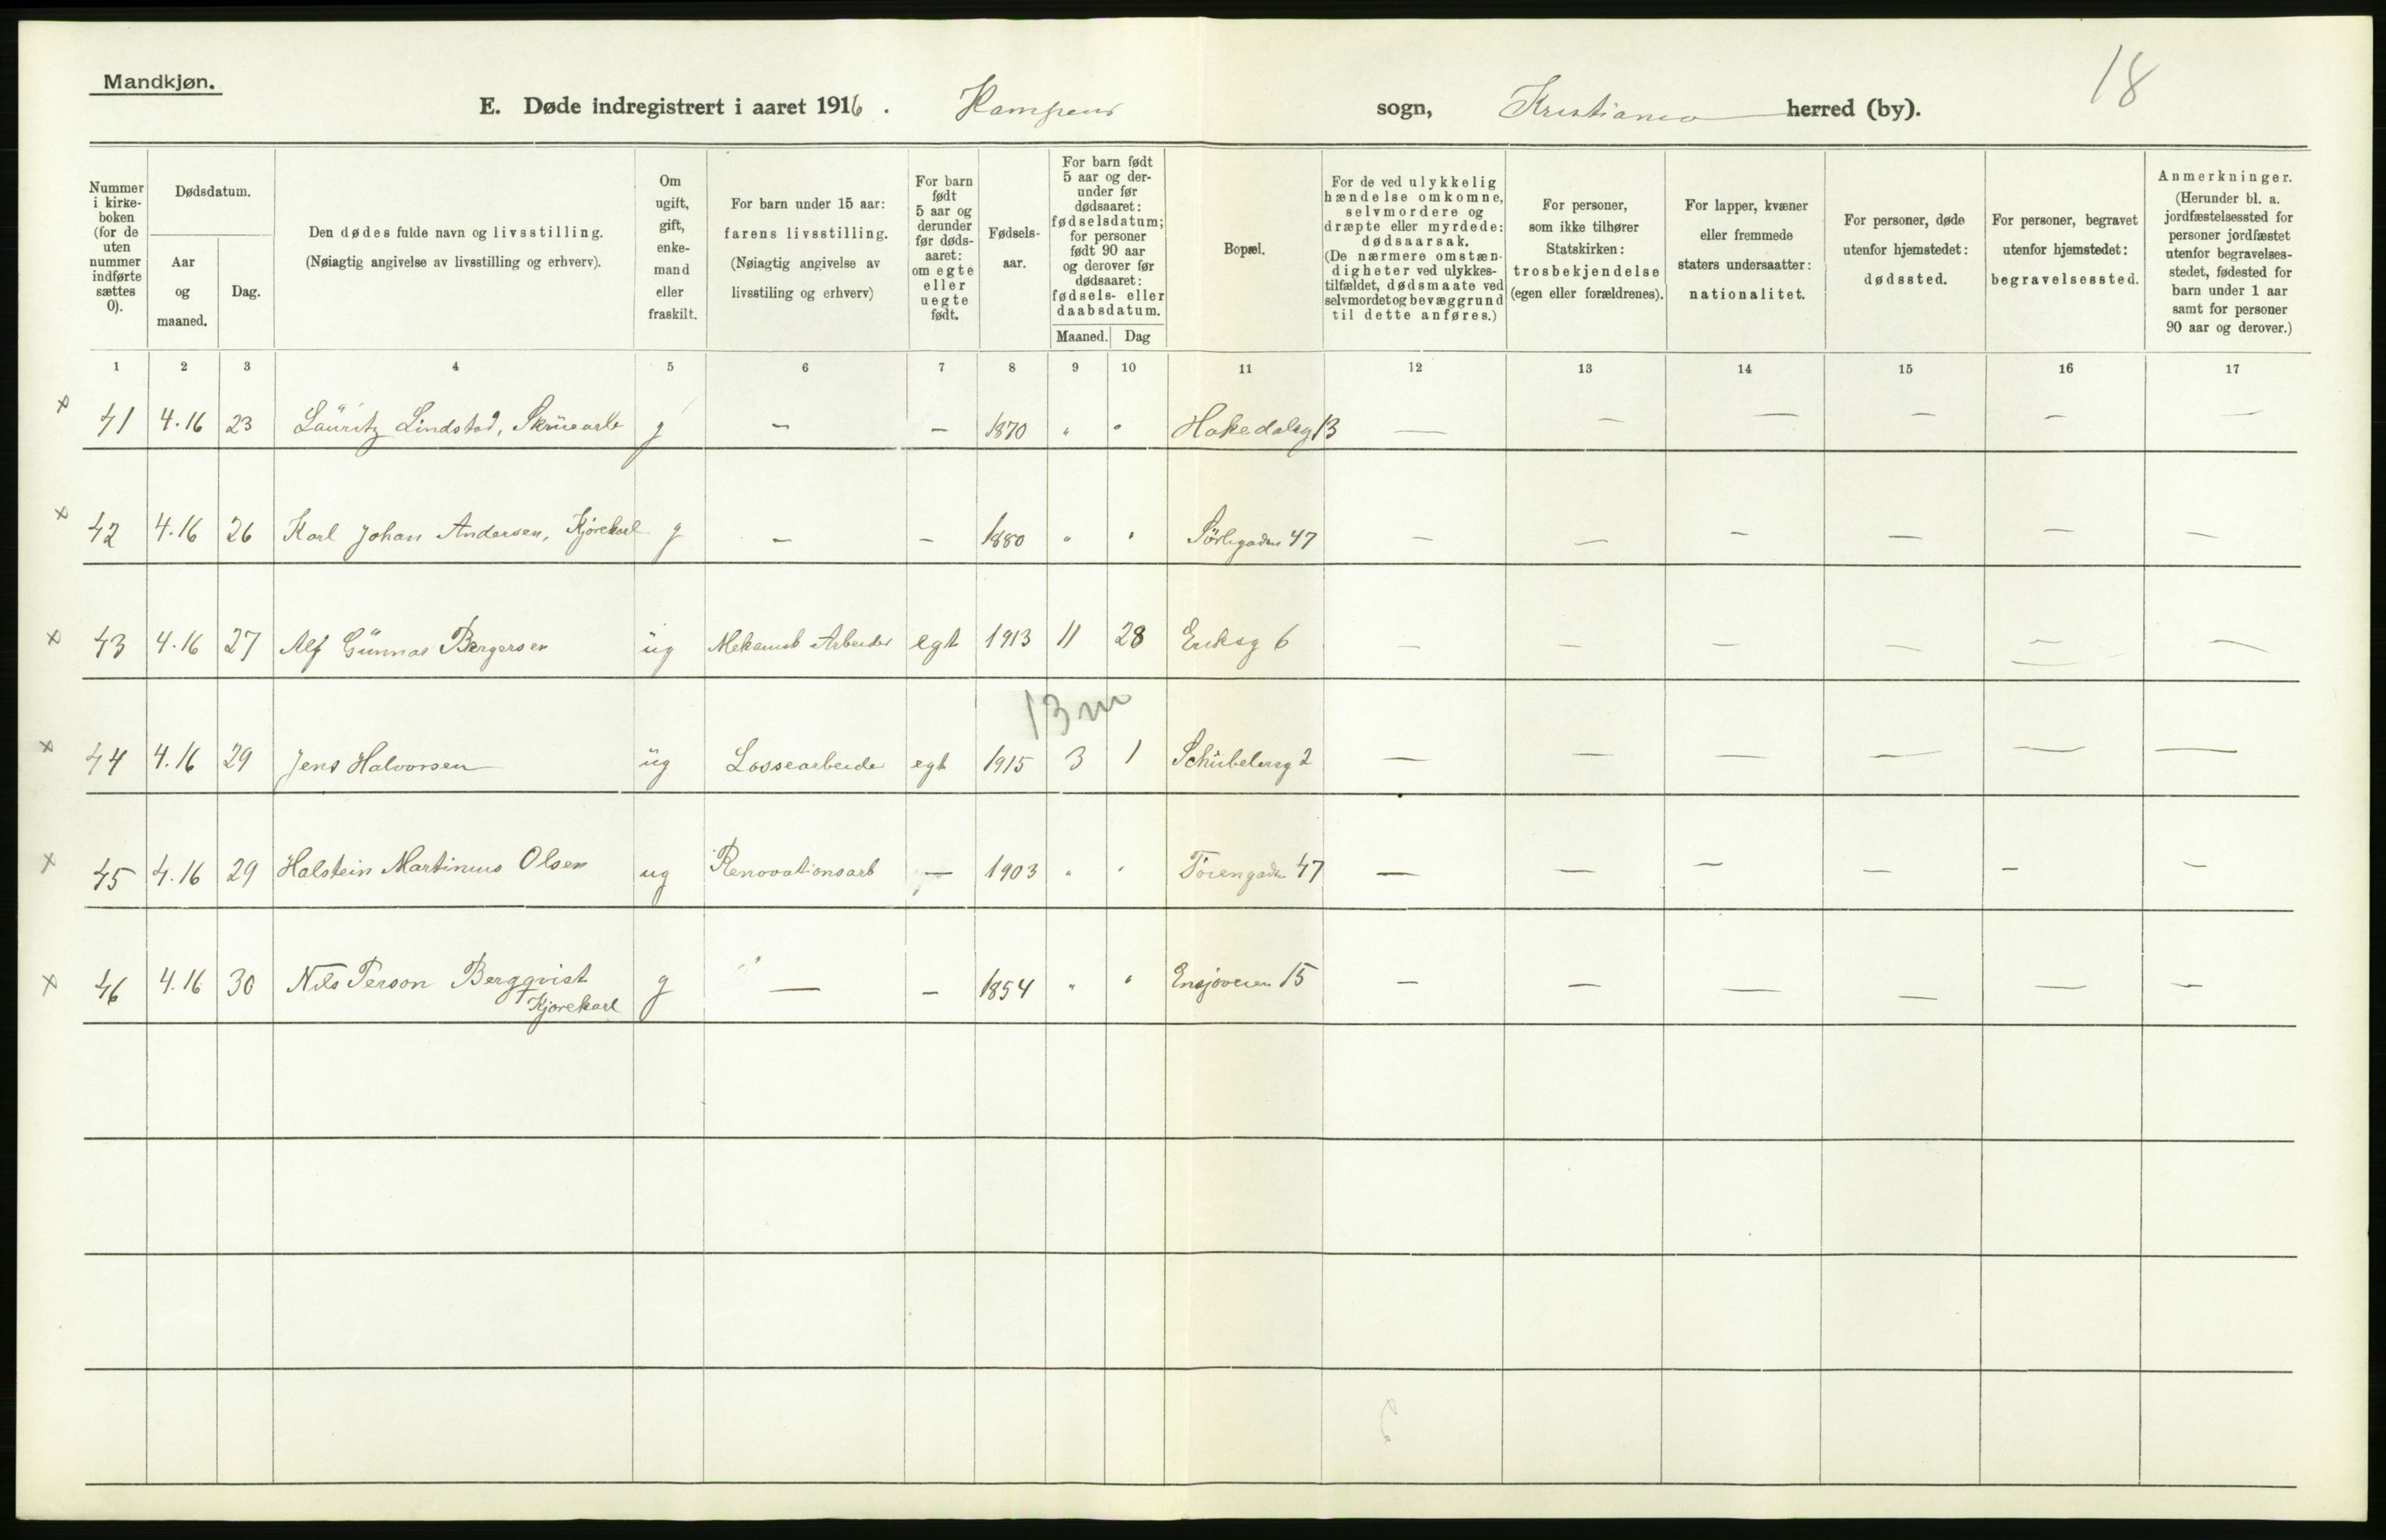 Mandkjøn.
18
E. Døde indregistrert i aaret 1916. Kampens sogn, Kristiania herred (by).
Nummer i kirke-boken (for de uten nummer indførte sættes 0).
Dødsdatum.
Aar og maaned.
Dag.
Den dødes fulde navn og livsstilling.
(Nøiagtig angivelse av livsstilling og erhverv).
Om ugift, gift, enke-mand eller fraskilt.
For barn under 15 aar: farens livsstilling.
(Nøiagtig angivelse av livsstiling og erhverv)
For barn født 5 aar og derunder før døds-aaret: om egte eller uegte født.
Fødsels-aar.
For barn født 5 aar og der-under før dødsaaret: fødselsdatum; for personer født 90 aar og derover før dødsaaret: fødsels- eller daabsdatum.
Maaned.
Dag
Bopæl.
For de ved ulykkelig hændelse omkomne, selvmordere og dræpte eller myrdede: dødsaarsak.
(De nærmere omstæn-digheter ved ulykkes-tilfældet, dødsmaate ved selvmordet og bevæggrund til dette anføres.)
For personer, som ikke tilhører Statskirken: trosbekjendelse (egen eller forældrenes).
For lapper, kvæner eller fremmede staters undersaatter: nationalitet.
For personer, døde utenfor hjemstedet: dødssted.
For personer, begravet utenfor hjemstedet: begravelsessted.
Anmerkninger.
(Herunder bl. a. jordfæstelsessted for personer jordfæstet utenfor begravelses-stedet, fødested for barn under 1 aar samt for personer 90 aar og derover.)
1 2 3 4 5 6 7 8 9 10 11 12 13 14 15 16 17
x 41 4.16 23 Lauritz Lindstad, Skruearb g — — 1870 " " Hakedalsg 13 — — — — — —
x 42 4.16 26 Karl Johan Andersen, Kjørekarl g — — 1880 " " Sørligaden 47 — — — — — —
x 43 4.16 27 Alf Gunnar Bergersen ug Mekanisk Arbeider egt 1913 11 28 Eriksg 6 — — — — — —
13 m
x 44 4.16 29 Jens Halvorsen ug Lossearbeider egt 1915 3 1 Schübelersg 2 — — — — — —
x 45 4.16 29 Halstein Martinius Olsen ug Renovationsarb — 1903 " " Tøiengaden 47 — — — — — —
x 46 4.16 30 Nils Person Bergqvist g — — 1854 " " Ensjøveien 15 — — — — — —
Kjørekarl
6